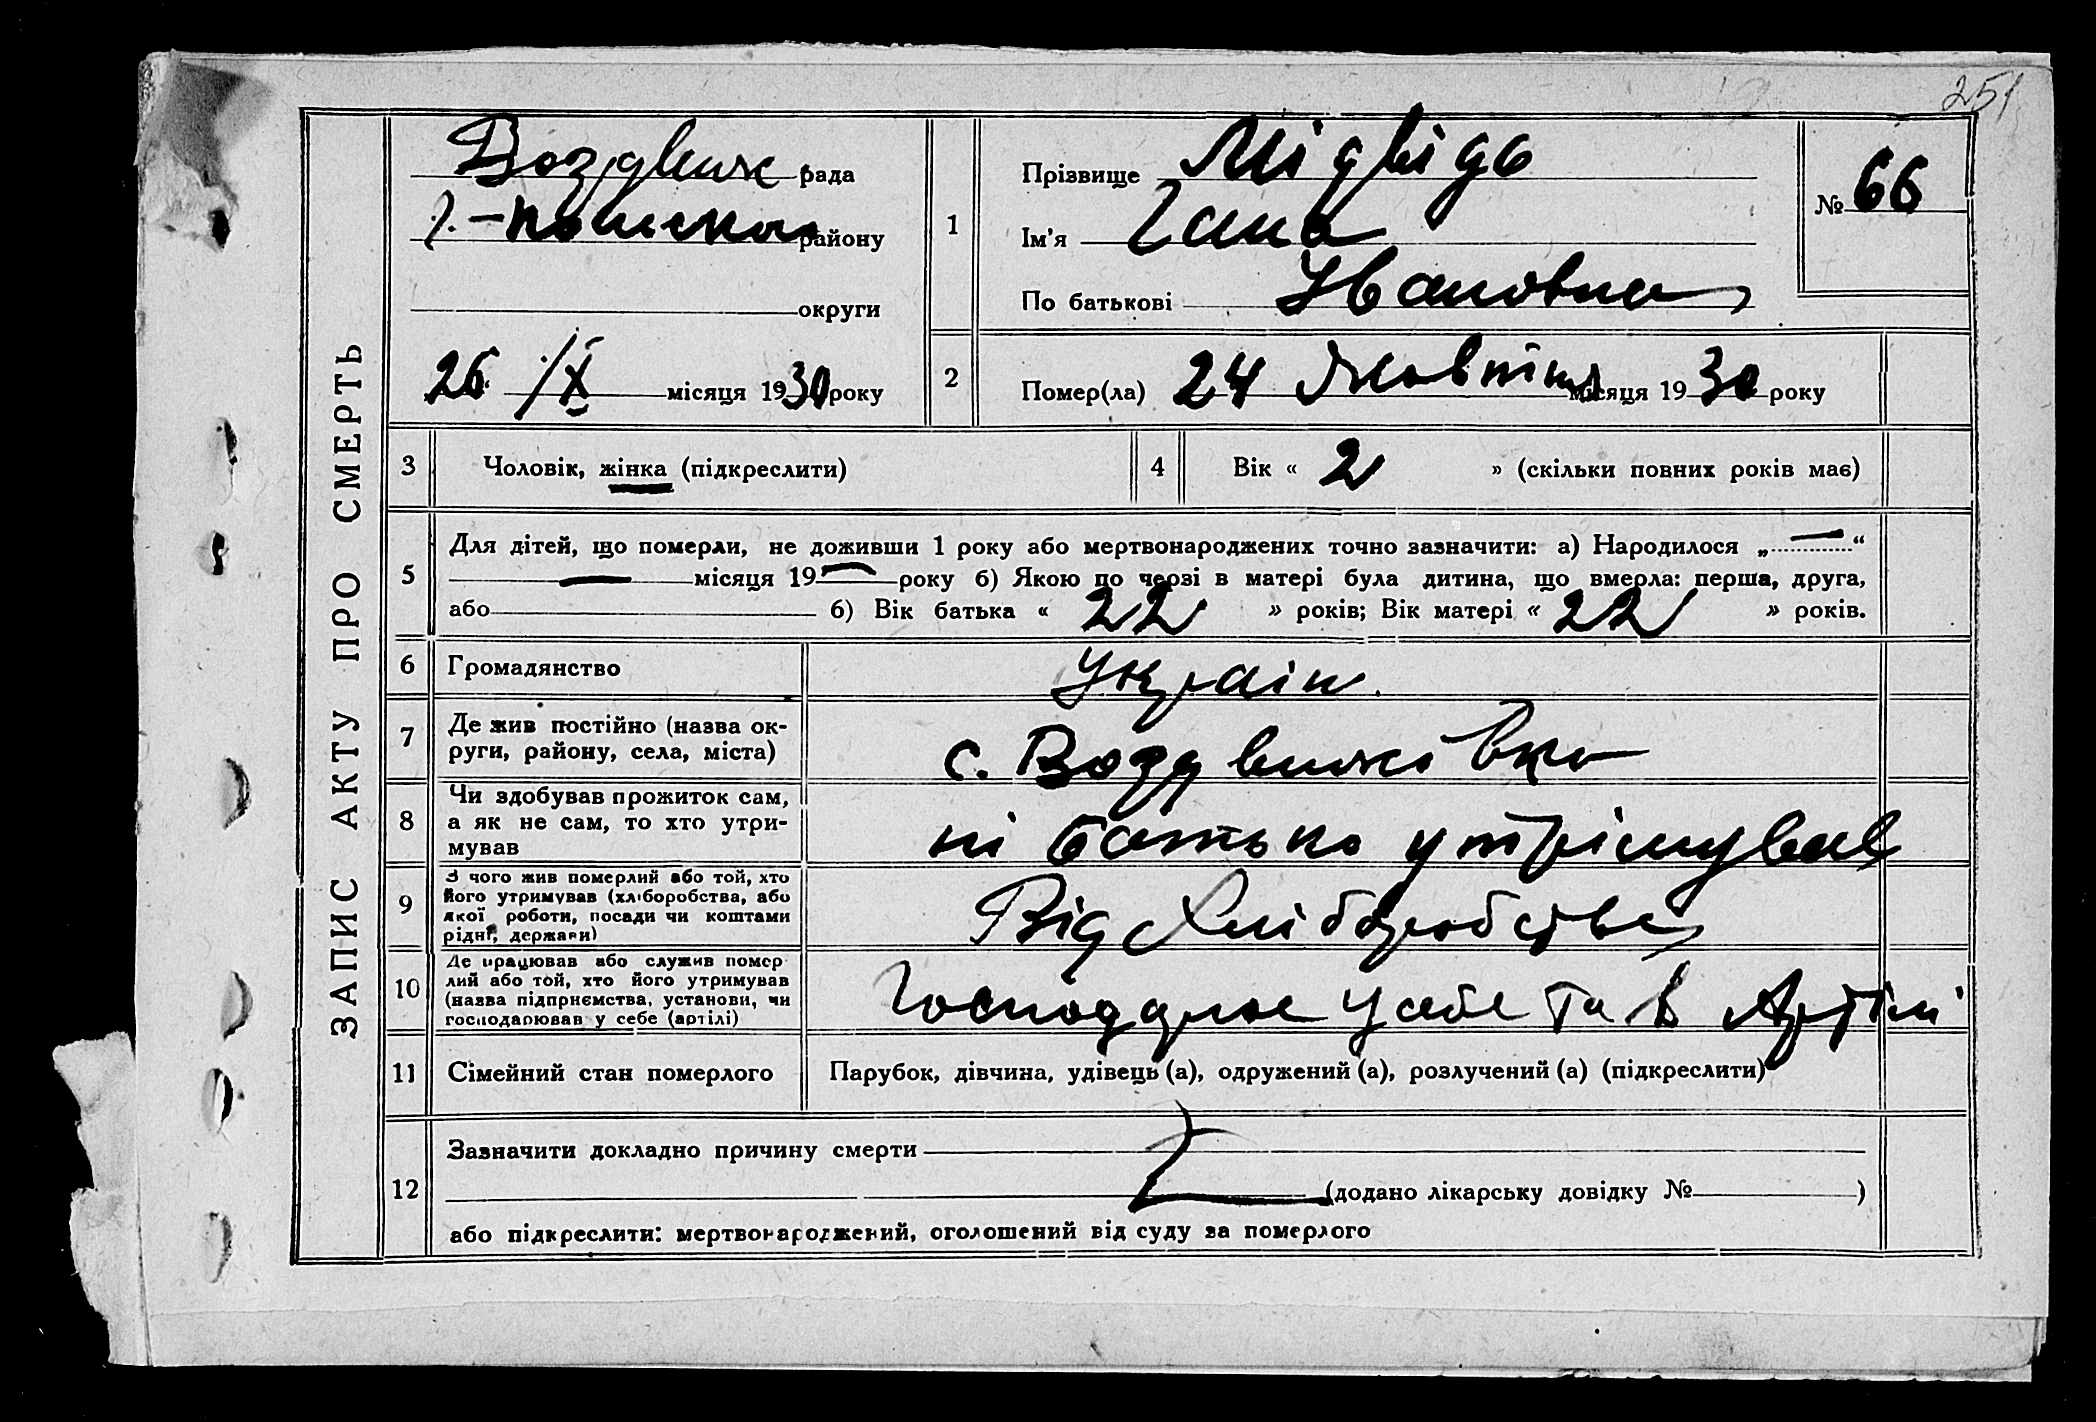 251
ЗАПИС АКТУ ПРО СМЕРТЬ
Воздвиж рада
району
округи
26 /X місяця 1930 року
1
Прізвище Мідвідь
Ім'я Гана
По батькові Ивановна
№ 66
2
Помер(ла) 24 Жовтня місяця 1930 року
3 Чоловік, жінка (підкреслити)
4 Вік « 2 » (скільки повних років має)
5 Для дітей, що померли, не доживши 1 року або мертвонароджених точно зазначити: а) Народилося „—“
— місяця 19— року б) Якою по черзі в матері була дитина, що вмерла: перша, друга,
або б) Вік батька « 22 » років; Вік матері « 22 » років.
6 Громадянство Україн.
7 Де жив постійно (назва ок-
руги, району, села, міста) с. Воздвижівка
8 Чи здобував прожиток сам,
а як не сам, то хто утри-
мував ні батько утрімував
9 З чого жив померлий або той, хто
його утримував (хліборобства, або
якої роботи, посади чи коштами
рідні, держави) Від Хліборобства
10 Де працював або служив помер
лий або той, хто його утримував
(назва підприємства, установи, чи
господарював у себе (артілі) у себе та в Артілі
11 Сімейний стан померлого Парубок, дівчина, удівець (а), одружений (а), розлучений (а) (підкреслити)
12 Зазначити докладно причину смерти
(додано лікарську довідку № )
або підкреслити: мертвонароджений, оголошений від суду за померлого